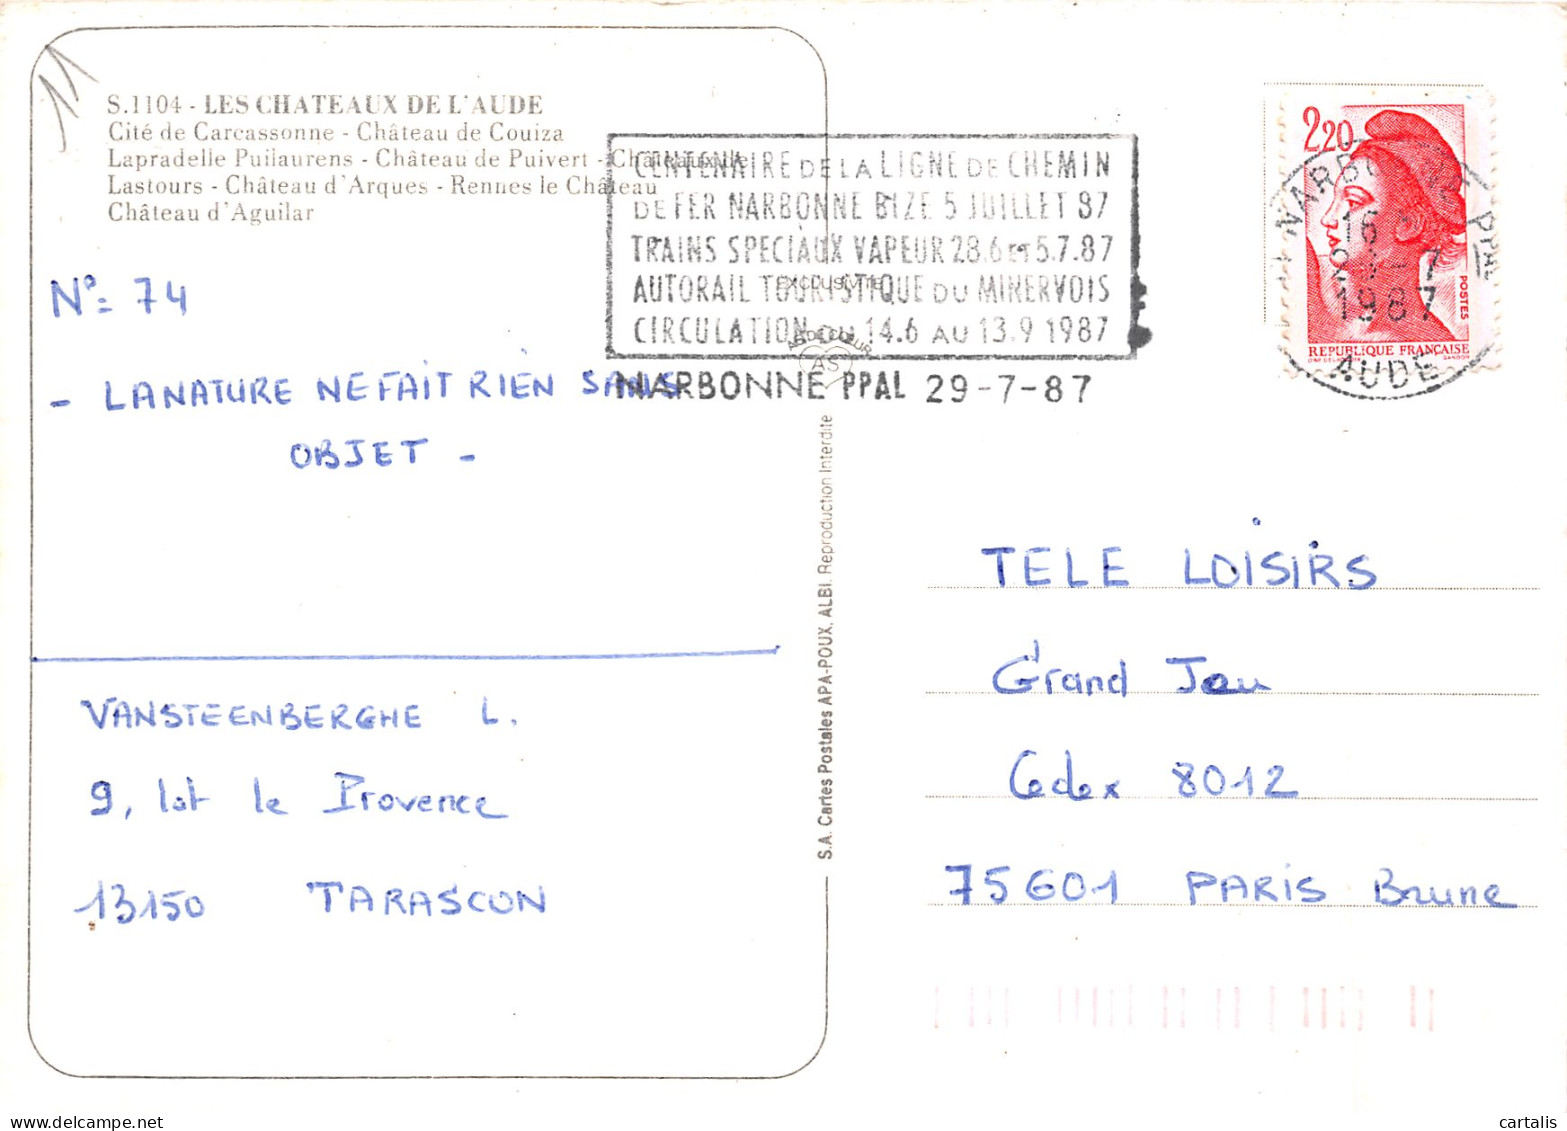 11
S.1104 - LES CHATEAUX DE L'AUDE
Cité de Carcassonne - Château de Couiza
Lapradelle Puilaurens - Château de Puivert - Châteauxville
Lastours - Château d'Arques - Rennes le Château
Château d'Aguilar
CENTENAIRE DE LA LIGNE DE CHEMIN
DE FER NARBONNE BIZE 5 JUILLET 87
TRAINS SPECIAUX VAPEUR 28.6 ET 5.7.87
AUTORAIL TOURISTIQUE DU MINERVOIS
CIRCULATION DU 14.6 AU 13.9 1987
NARBONNE PPAL 29-7-87
EXCLUSIVITE
AS DE CŒUR
AS
2,20
POSTES
REPUBLIQUE FRANÇAISE
NARBONNE PPAL
16
1987
AUDE
N°= 74
- LA NATURE NE FAIT RIEN SANS
OBJET -
VANSTEENBERGHE L.
9, lot le Provence
13150 TARASCON
S.A. Cartes Postales APA-POUX, ALBI. Reproduction Interdite
TELE LOISIRS
Grand Jeu
Cedex 8012
75601 PARIS Brune
cartalis
delcampe.net